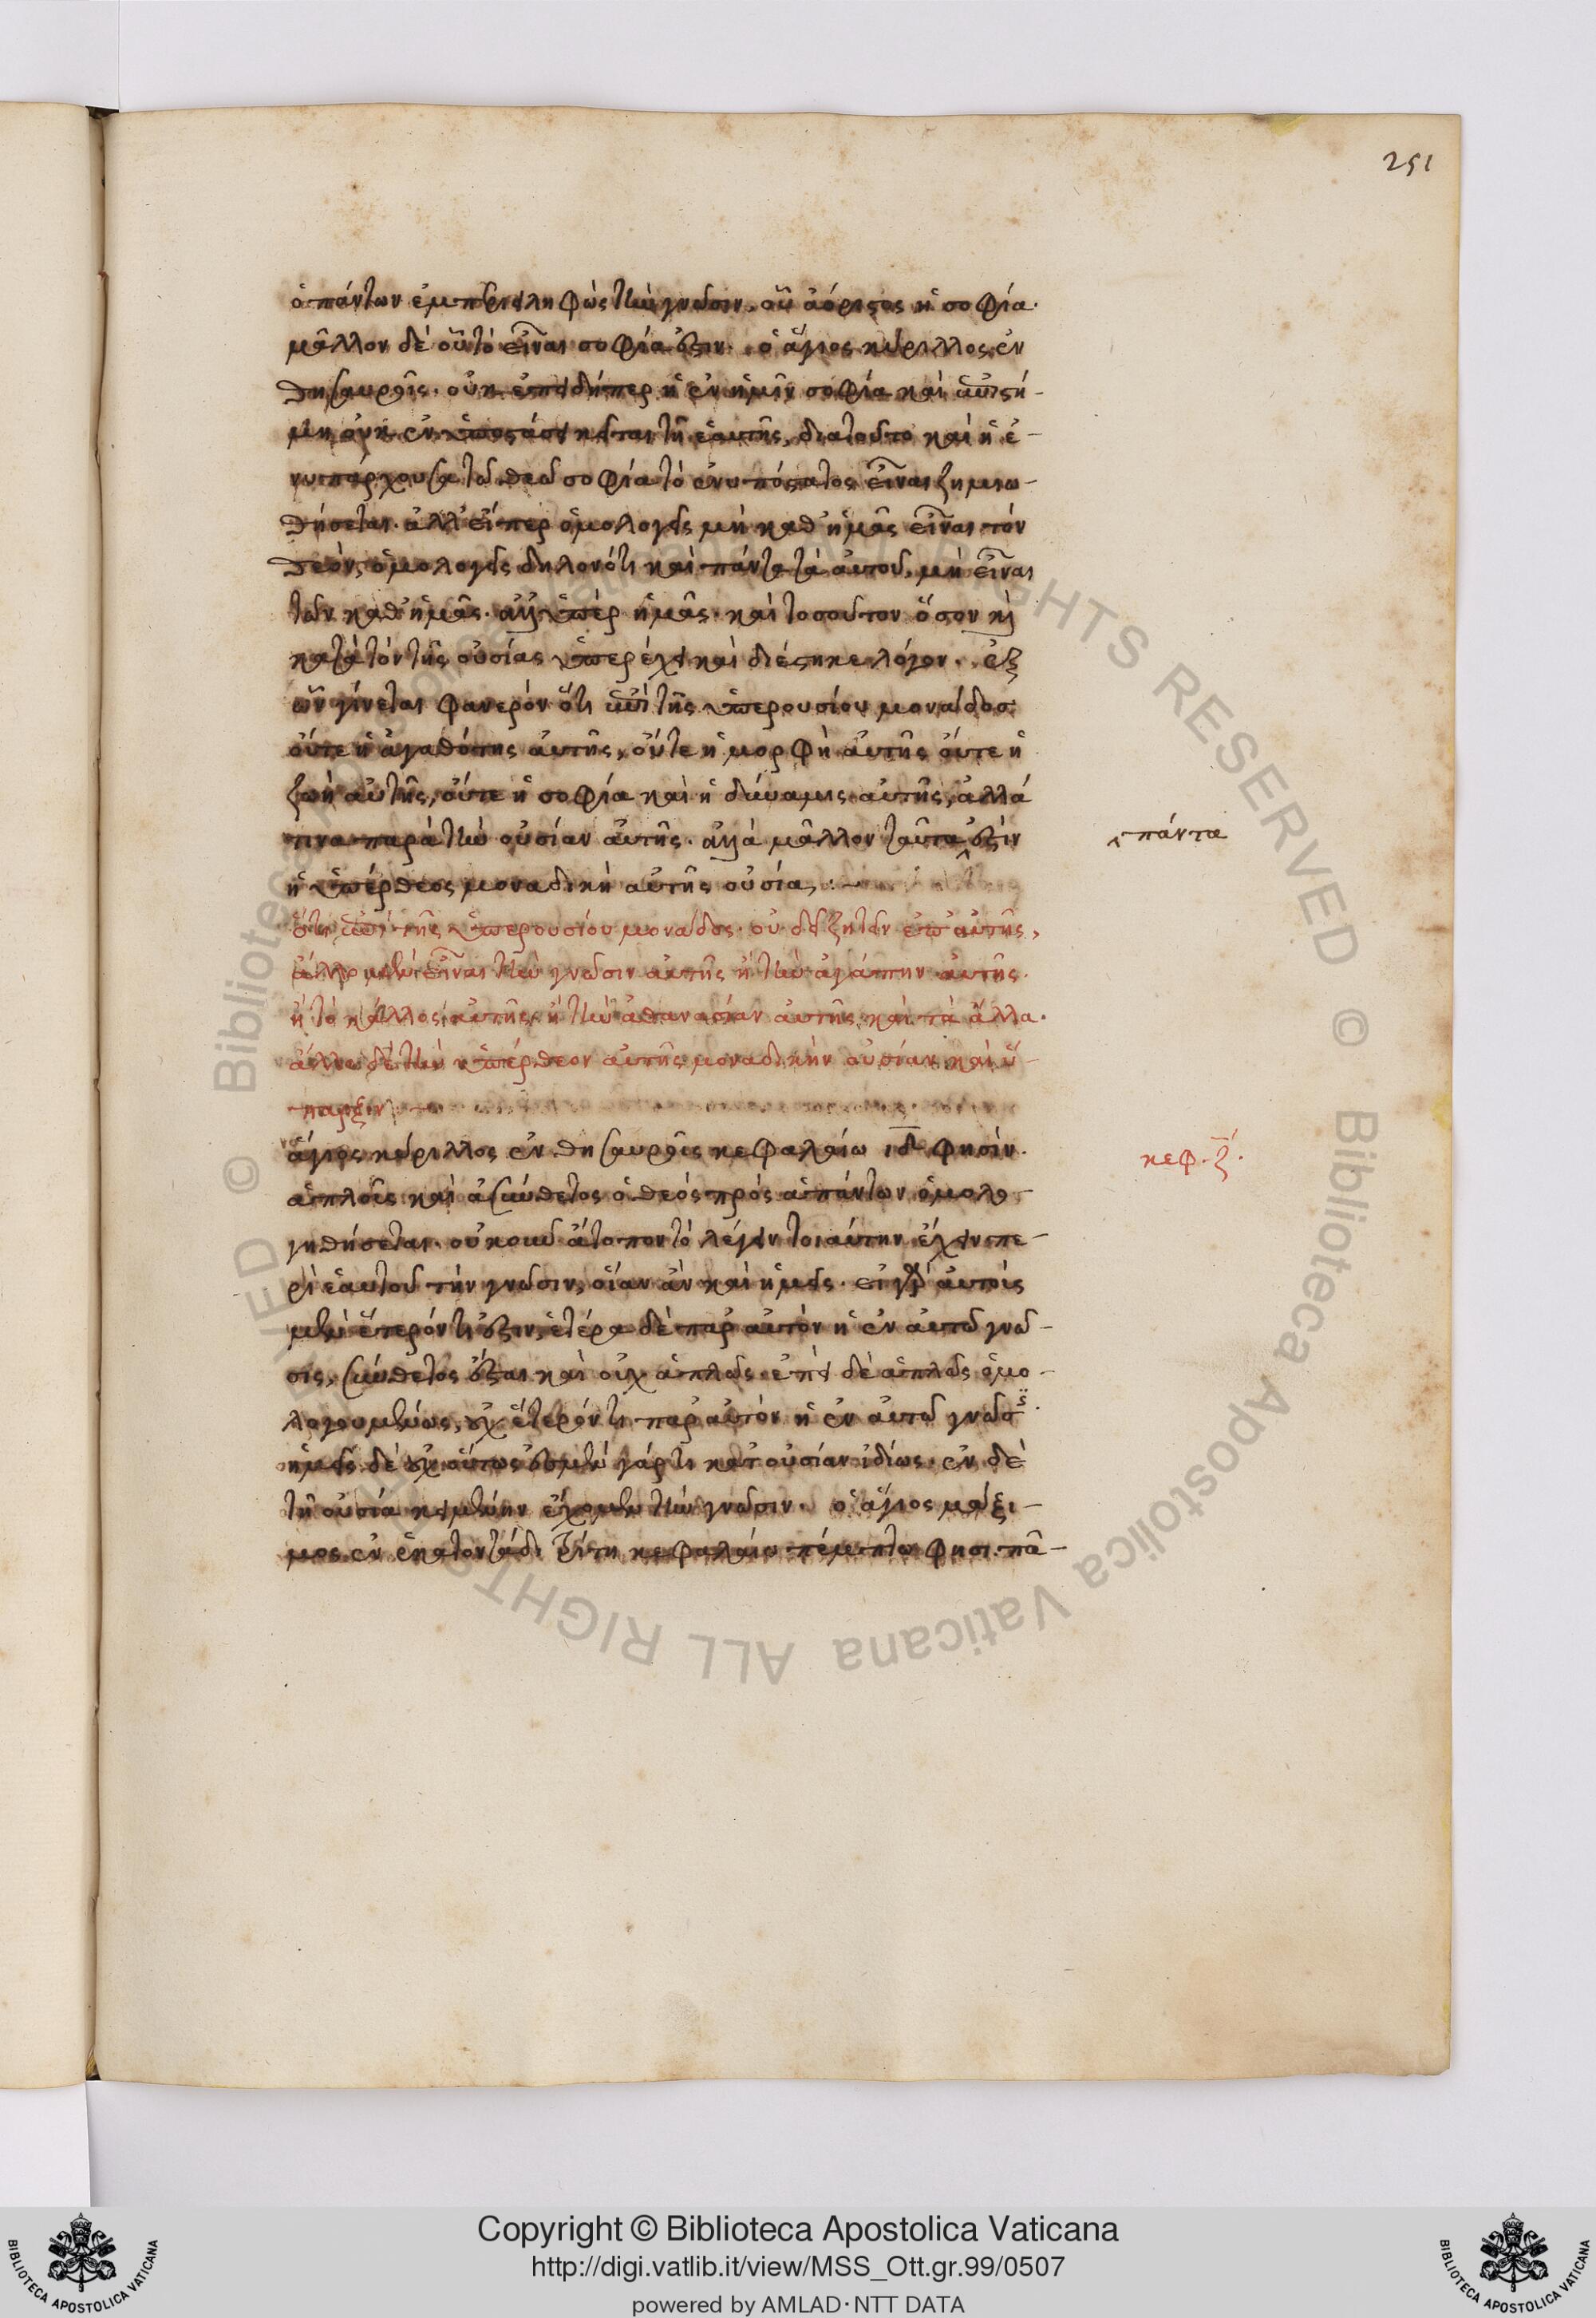 251
ὁ πάντων ἐμπεριειληφὼς τὴν γνῶσιν, οὗ ἀόριστος ἡ σοφία·
μᾶλλον δὲ οὗ τὸ εἶναι σοφία ἐστιν. ὁ ἅγιος κύριλλος ἐν
θησαυροῖς. οὐκ ἐπειδήπερ ἡ ἐν ἡμῖν σοφία καὶ ἐπιστή-
μη οὐκ ἐν ὑποστάσει κεῖται τῇ ἑαυτῆς, διατοῦτο καὶ ἡ ἐ-
νυπάρχουσα τῶ θεῶ σοφία τὸ ἐνυπόστατος εἶναι ζημιω-
θήσεται. ἀλλ' εἴπερ ὁμολογεῖς μὴ καθ' ἡμᾶς εἶναι τὸν
θεὸν, ὁμολογεῖς δηλονότι καὶ πάντα τὰ αὐτοῦ, μὴ εἶναι
τῶν καθ' ἡμᾶς. ἀλλ' ὑπὲρ ἡμᾶς. καὶ τοσοῦτον ὅσον καὶ
κατὰ τὸν τῆς οὐσίας ὑπερέχει καὶ διέστηκε λόγον. ἐξ
ὧν γίνεται φανερὸν ὅτι ἐπὶ τῆς ὑπερουσίου μονάδος
οὔτε ἡ ἀγαθότης αὐτῆς, οὔτε ἡ μορφὴ αὐτῆς οὔτε ἡ
ζωὴ αὐτῆς, οὔτε ἡ σοφία καὶ ἡ δύναμις αὐτῆς, ἀλλά
τινα παρὰ τὴν οὐσίαν αὐτῆς. ἀλλὰ μᾶλλον ταῦτα ἐστὶν
πάντα
ἡ ὑπέρθεος μοναδικὴ αὐτῆς οὐσία:
ὅτι ἐπὶ τῆς ὑπερουσίου μονάδος οὐ δεῖ ζητεῖν ἐπ' αὐτῆς,
ἄλλο μὲν εἶναι τὴν γνῶσιν αὐτῆς ἢ τὴν ἀγάπην αὐτῆς.
ἢ τὸ κάλλος αὐτῆς, ἢ τὴν ἀθανασίαν αὐτῆς καὶ τὰ ἄλλα.
ἄλλο δὲ τὴν ὑπέρθεον αὐτῆς μοναδικὴν οὐσίαν καὶ ὕ-
παρξιν:
ἅγιος κύριλλος ἐν θησαυροῖς κεφαλαίω ιδ φησίν.
κεφ. ξ΄.
ἁπλοῦς καὶ ἀσύνθετος ὁ θεὸς πρὸς ἁπάντων ὁμολο-
γηθήσεται. οὐκοῦν ἄτοπον τὸ λέγειν τοιαύτην ἔχειν πε-
ρὶ ἑαυτοῦ τὴν γνῶσιν, οἵαν ἂν καὶ ἡμεῖς. εἰ γὰρ αὐτὸς
μὲν ἕτερόν τι ἐστιν, ἑτέρα δὲ παρ' αὐτὸν ἡ ἐν αὐτῶ γνῶ-
σις, σύνθετος ἔσται καὶ οὐχ ἁπλῶς. ἐπεὶ δὲ ἁπλῶς ὁμο-
λογουμένως, οὐχ ἕτερόν τι παρ' αὐτὸν ἡ ἐν αὐτῶ γνῶσις.
ἡμεῖς δὲ οὐχ οὕτως ἐσμέν γάρ τι κατ' οὐσίαν ἰδίως. ἐν δὲ
τῇ οὐσία κειμένην ἔχομεν τὴν γνῶσιν. ὁ ἅγιος μάξι-
μος ἐν ἑκατοντάδι τρίτη κεφαλαίω πέμπτω φησι. πᾶ-
Copyright © Biblioteca Apostolica Vaticana
http://digi.vatlib.it/view/MSS_Ott.gr.99/0507
powered by AMLAD·NTT DATA
BIBLIOTECA APOSTOLICA VATICANA
BIBLIOTECA APOSTOLICA VATICANA
© Biblioteca Apostolica Vaticana ALL RIGHTS RESERVED © Biblioteca Apostolica Vaticana ALL RIGHTS RESERVED